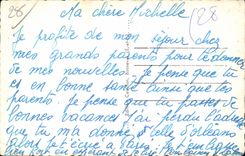 28
28
Ma chère Michelle
Je profite de mon séjour chez
mes grands parents pour te donner
de mes nouvelles. Je pense que tu
es en bonne santé ainsi que tes
parents. Je pense que tu passes de
bonnes vacances J'ai perdu l'adresse
que tu m'a donné, celle d'Orléans
alors je t'écris a